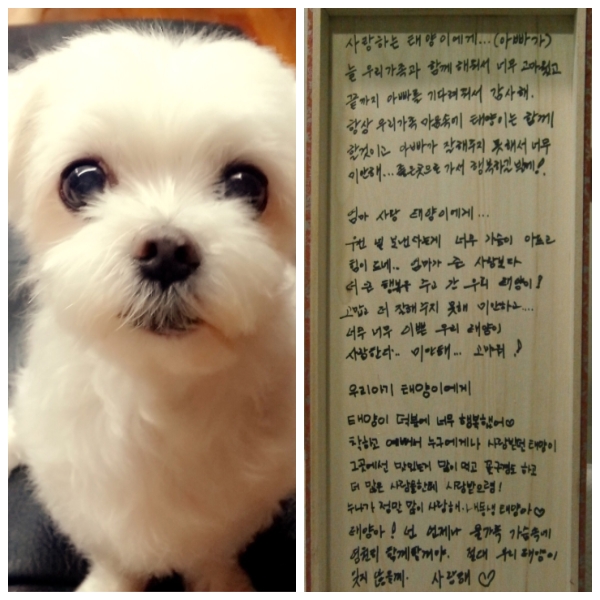 사랑하는 태양이에게...(아빠가)
늘 우리가족과 함께 해줘서 너무 고마웠고
끝까지 아빠를 기다려줘서 감사해.
항상 우리가족 마음속에 태양이는 함께
할것이고 아빠가 잘해주지 못해서 너무
미안해... 좋은곳으로 가서 행복하길 빌게!
엄마 사랑 태양이에게...
우선 널 보낸다는게 너무 가슴이 아프고
힘이 드네.. 엄마가 준 사랑보다
더 큰 행복을 주고 간 우리 태양이!
고맙고 더 잘해주지 못해 미안하고...
너무 너무 이쁜 우리 태양이
사랑한다.. 미안해... 고마워!
우리아기 태양이에게
태양이 덕분에 너무 행복했어♡
착하고 예뻐서 누구에게나 사랑받던 태양이
그곳에선 맛있는거 많이 먹고 꽃구경도 하고
더 많은 사람들한테 사랑받으렴!
누나가 정말 많이 사랑해. 내동생 태양아♡
태양아! 넌 언제나 울가족 가슴속에
영원히 함께할꺼야. 절대 우리 태양이
잊지 않을께. 사랑해♡